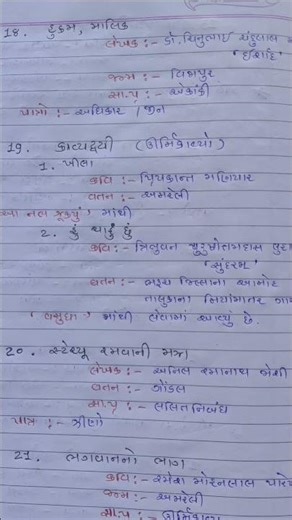 18. હુકમ, માલિક
લેખક :- ડૉ. ચિનુભાઈ ચંદુલાલ
'ઇર્શાદ'
જન્મ :- વિજાપુર
સા.પ્ર :- એકાંકી
પાત્રો :- અધિકાર, જીન
19. કાવ્યદ્વયી (ઊર્મિકાવ્યો)
1. ખીલા
કવિ :- પ્રિયકાન્ત મણિયાર
વતન :- અમરેલી
આ નભ ઝૂક્યું' માંથી
2. હું ચાહું છું
કવિ :- ત્રિભુવન પુરુષોત્તમદાસ લુહા
'સુંદરમ્'
વતન :- ભરૂચ જિલ્લાના આમોદ
તાલુકાના મિયાંમાતર ગા
'વસુધા' માંથી લેવામાં આવ્યું છે.
20. સ્ટેચ્યૂ રમવાની મઝા
લેખક :- અનિલ રમાનાથ જોશી
વતન :- ગોંડલ
સા.પ્ર :- લલિતનિબંધ
પાત્ર :- ત્રીણો
21. ભગવાનનો ભાગ
કવિ :- રમેશ મોહનલાલ પારે
જન્મ :- અમરેલી
સા.પ્ર :- ઊર્મિકાવ્ય